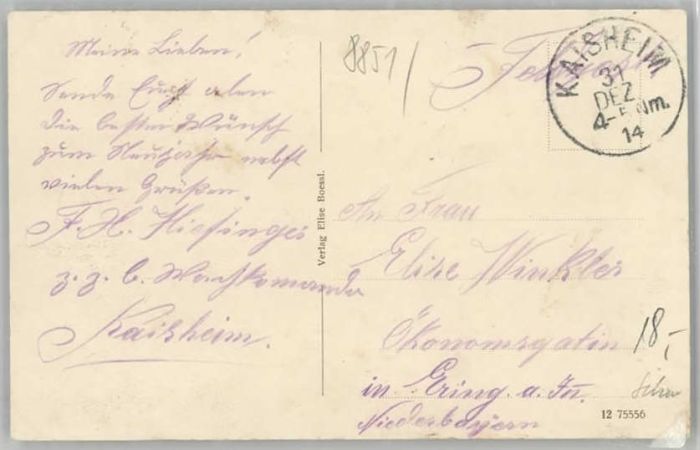 Meine Lieben!
Sende Euch allen
die besten Wünsch
zum Neujahr nebst
vielen Grüßen.
F. H.
z. Z. b. Wachkomando
Kaisheim.
Verlag Elise Boessl.
8851
Feldpost
KAISHEIM
31
DEZ
4-5 Nm.
14
An Frau
Elise Winkler
Ökonomsgatin
in Ering. a. Inn.
Niederbayern
18,-
12 75556